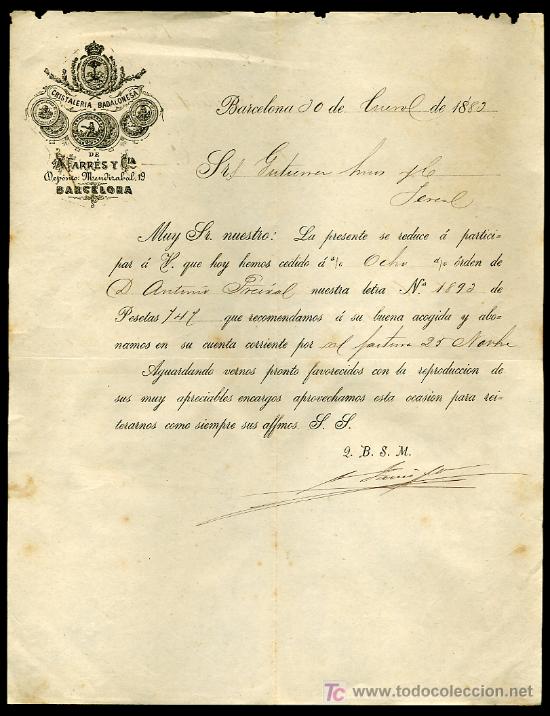 CRISTALERIA BADALONESA
DE
FARRÉS Y Cía
Depósito: Mendizabal, 19
BARCELONA
Barcelona 20 de Enero de 1883
Srs Gutierrez Hnos y Ca
Muy Sr. nuestro: La presente se reduce á partici-
par á V. que hoy hemos cedido á d/v Ocho d/v órden de
D. Antonio nuestra letra N.º 1893 de
Pesetas 747 que recomendamos á su buena acogida y abo-
namos en su cuenta corriente por factura 25 Novbre
Aguardando vernos pronto favorecidos con la reproduccion de
sus muy apreciables encargos aprovechamos esta ocasion para rei-
terarnos como siempre sus affmos. S. S.
Q. B. S. M.
TC www.todocoleccion.net